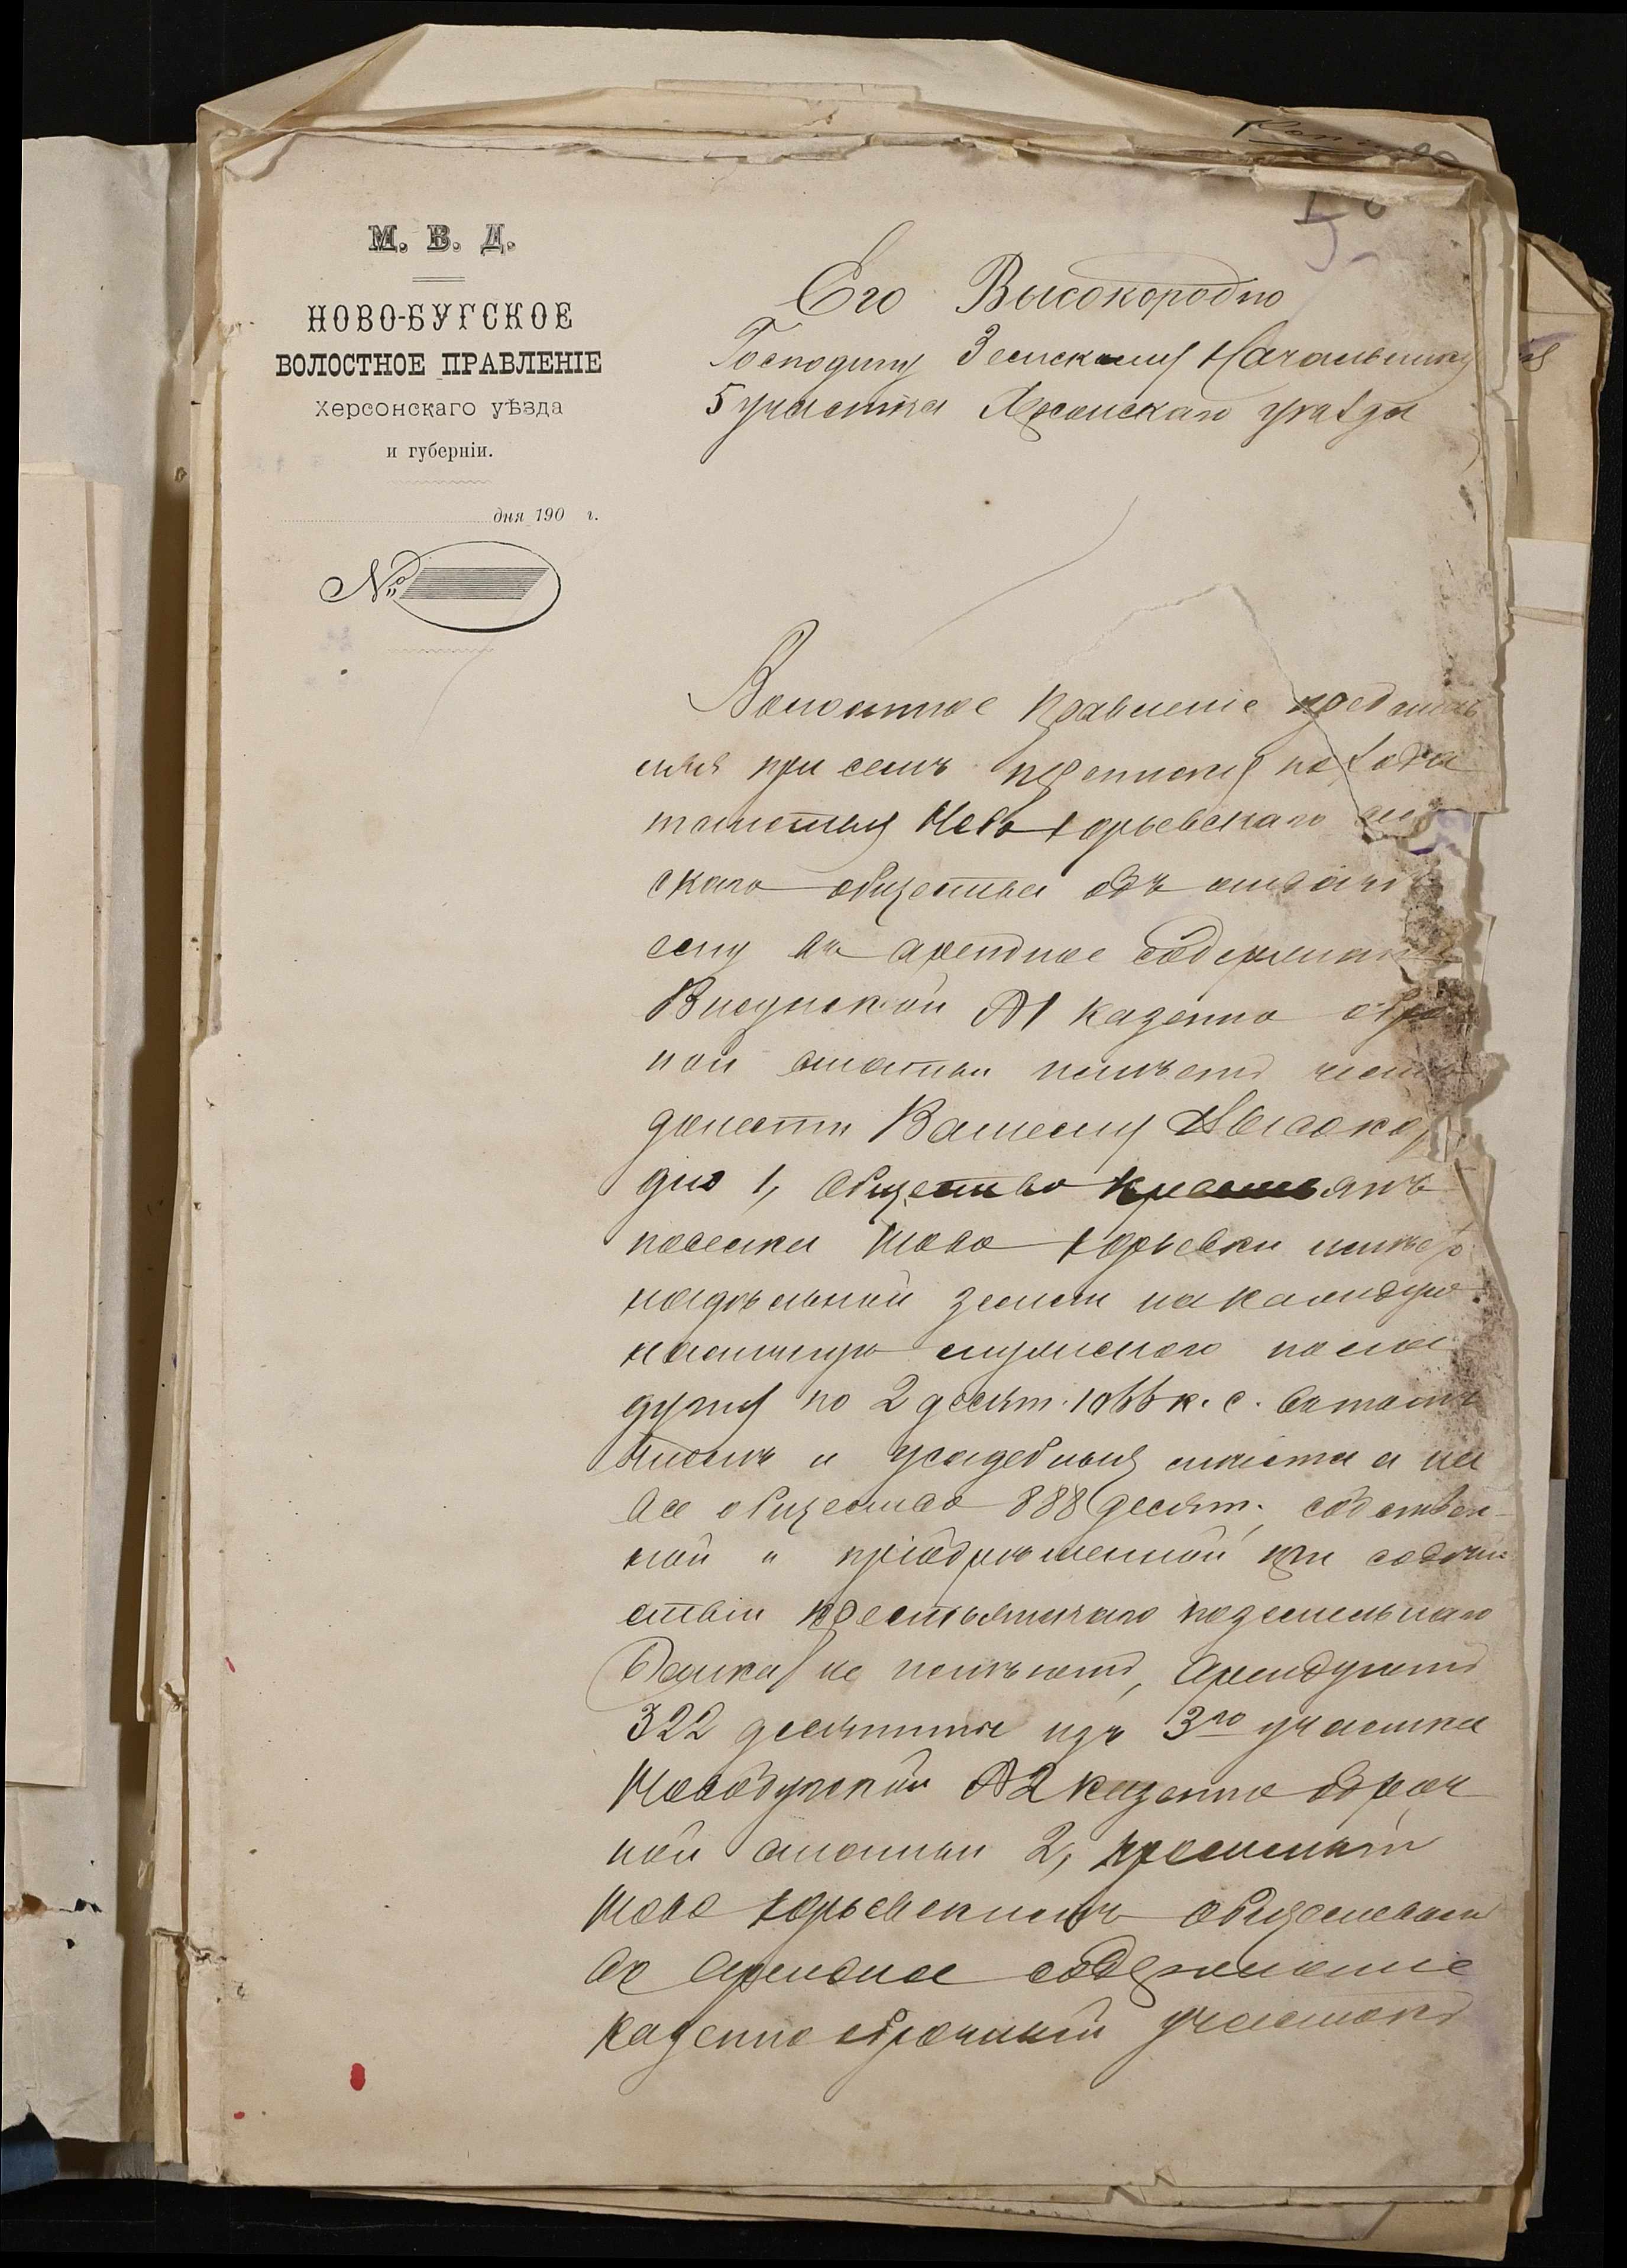 М. В. Д.
НОВО-БУГСКОЕ
ВОЛОСТНОЕ ПРАВЛЕНІЕ
Херсонскаго уѣзда
и губерніи.
дня 190 г.
№
Его Высокородію
Господину Земскому Начальнику
5 участка Херсонскаго уѣзда
Волостное Правленіе представ
ляя при семъ переписку по хода
тайству Ново Юрьевскаго сель
скаго общества объ отдачѣ
ему въ арендное содержаніе
Висунской №1 казенно оброч
ной статьи имѣетъ честь
донести Вашему Высокоро
дію 1, Общество крестьянъ
поселка Ново Юрьевки имѣетъ
надѣльной земли на каждую
наличную мужского пола
душу по 2 десят. 1066 к. с. въ томъ
числѣ и усадебныя мѣста а на
все общество 888 десят., собствен-
ной и пріобрѣтенной при содѣй
ствіи крестьянскаго поземельнаго
Банка не имѣетъ, арендуетъ
322 десятины изъ 3го участка
Новобугской №2 казенно оброч
ной статьи 2,
Ново Юрьевскимъ обществомъ
въ арендное содержаніе
казенно оброчный участокъ